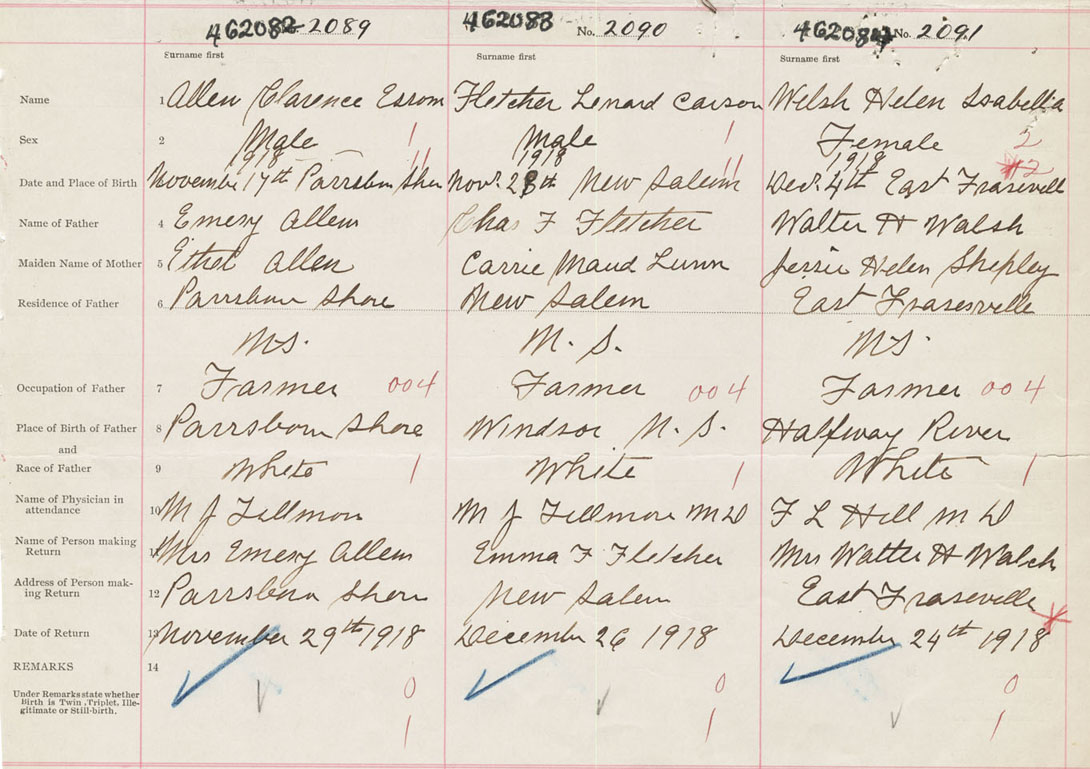 462082 2089 462083 No. 2090 462084 No. 2091
Surname first Surname first Surname first
Name 1 Allen Clarence Esrom Fletcher Lenard Carson Welsh Helen Isabellia
Sex 2 Male 1 Male 1 Female 2
1918 11 1918 11 1918 12
Date and Place of Birth November 17th Parrsboro Shore Novr. 28th New Salem Decr. 4th East Fraserville
Name of Father 4 Emery Allen Chas F Fletcher Walter H Walsh
Maiden Name of Mother 5 Ethel Allen Carrie Maud Lunn Jessie Helen Shepley
Residence of Father 6 Parrsboro Shore New Salem East Fraserville
N.S. N. S. N.S.
Occupation of Father 7 Farmer 004 Farmer 004 Farmer 004
Place of Birth of Father 8 Parrsboro Shore Windsor N. S. Halfway River
and
Race of Father 9 White 1 White 1 White 1
Name of Physician in
attendance 10 M J Fillmore M J Fillmore M D F L Hill M D
Name of Person making
Return 11 Mrs Emery Allen Emma F Fletcher Mrs Walter H Walsh
Address of Person mak-
ing Return 12 Parrsboro Shore New Salem East Fraserville
Date of Return 13 November 29th 1918 December 26 1918 December 24th 1918
REMARKS 14
Under Remarks state whether
Birth is Twin, Triplet, Ille-
gitimate or Still-birth.
0 0 0
1 1 1